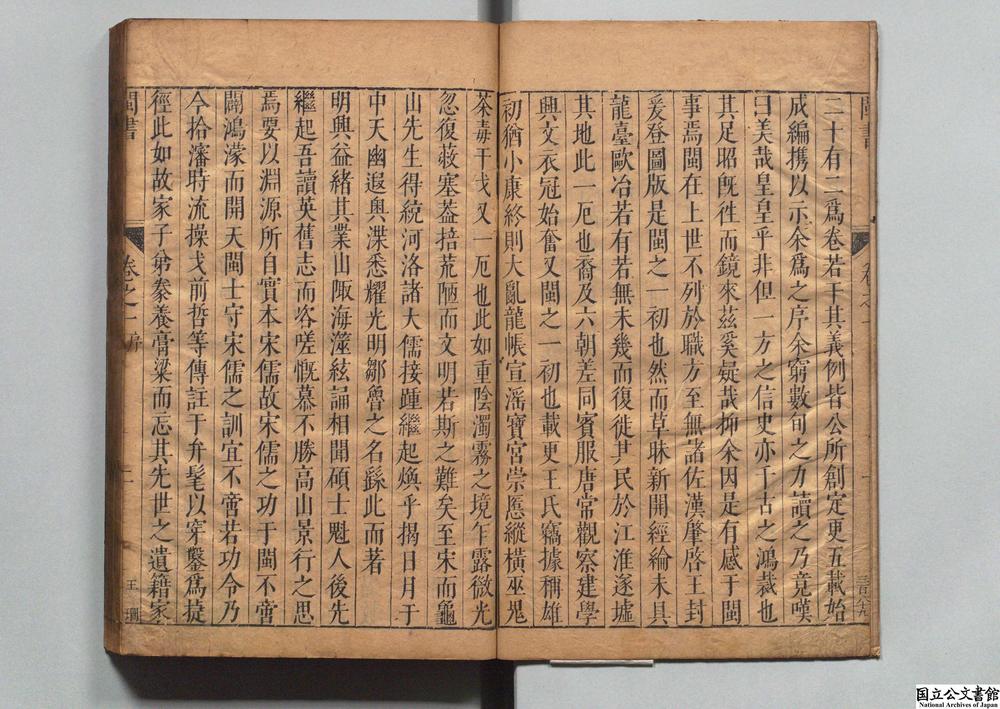 二十有二爲卷若干其義例皆公所創定更五載始
成編携以示余爲之序余窮數旬之力讀之乃竟嘆
曰美哉皇皇乎非但一方之信史亦千古之鴻裁也
其足昭旣徃而鏡來茲奚疑哉抑余因是有感于閩
事焉閩在上世不列於職方至無諸佐漢肇啓王封
爰登圖版是閩之一初也然而草昧新開經綸未具
龍臺歐冶若有若無未幾而復徙其民於江淮逐墟
其地此一厄也裔及六朝差同賓服唐常觀察建學
興文衣冠始奮又閩之一初也載更王氏竊據稱雄
初猶小康終則大亂龍帳宣滛寶宮崇慝縱橫巫鬼
荼毒干戈又一厄也此如重陰濁霧之境乍露微光
忽復蔽塞葢掊荒陋而文明若斯之難矣至宋而龜
山先生得統河洛諸大儒接踵繼起煥乎揭日月于
中天幽遐輿渫悉耀光明鄒魯之名繇此而著
明興益緒其業山陬海澨絃誦相聞碩士魁人後先
繼起吾讀英舊志而咨嗟慨慕不勝高山景行之思
焉要以淵源所自實本宋儒故宋儒之功于閩不啻
闢鴻濛而開天閩士守宋儒之訓宜不啻若功令乃
今拾瀋時流操戈前哲等傳註于弁髦以穿鑿爲捷
徑此如故家子弟豢養膏粱而忘其先世之遺籍家
閩書
卷之一序
二
国立公文書館
National Archives of Japan